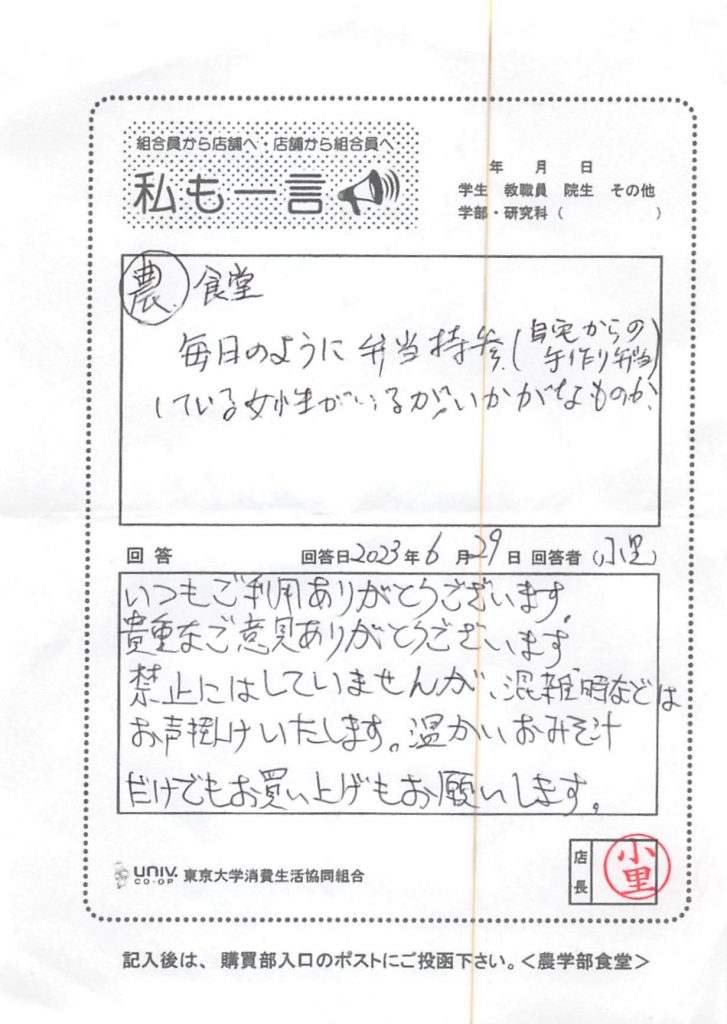 組合員から店舗へ・店舗から組合員へ
私も一言
年 月 日
学生 教職員 院生 その他
学部・研究科（ ）
農 食堂
毎日のように弁当持参(自宅からの
手作り弁当)
している女性がいるが、いかがなものか?
回答 回答日2023年6月29日 回答者（小里）
いつもご利用ありがとうございます。
貴重なご意見ありがとうございます
禁止にはしていませんが、混雑時などは
お声掛けいたします。温かいおみそ汁
だけでもお買い上げもお願いします。
UNIV.
CO-OP
東京大学消費生活協同組合
店長
小里
記入後は、購買部入口のポストにご投函下さい。＜農学部食堂＞